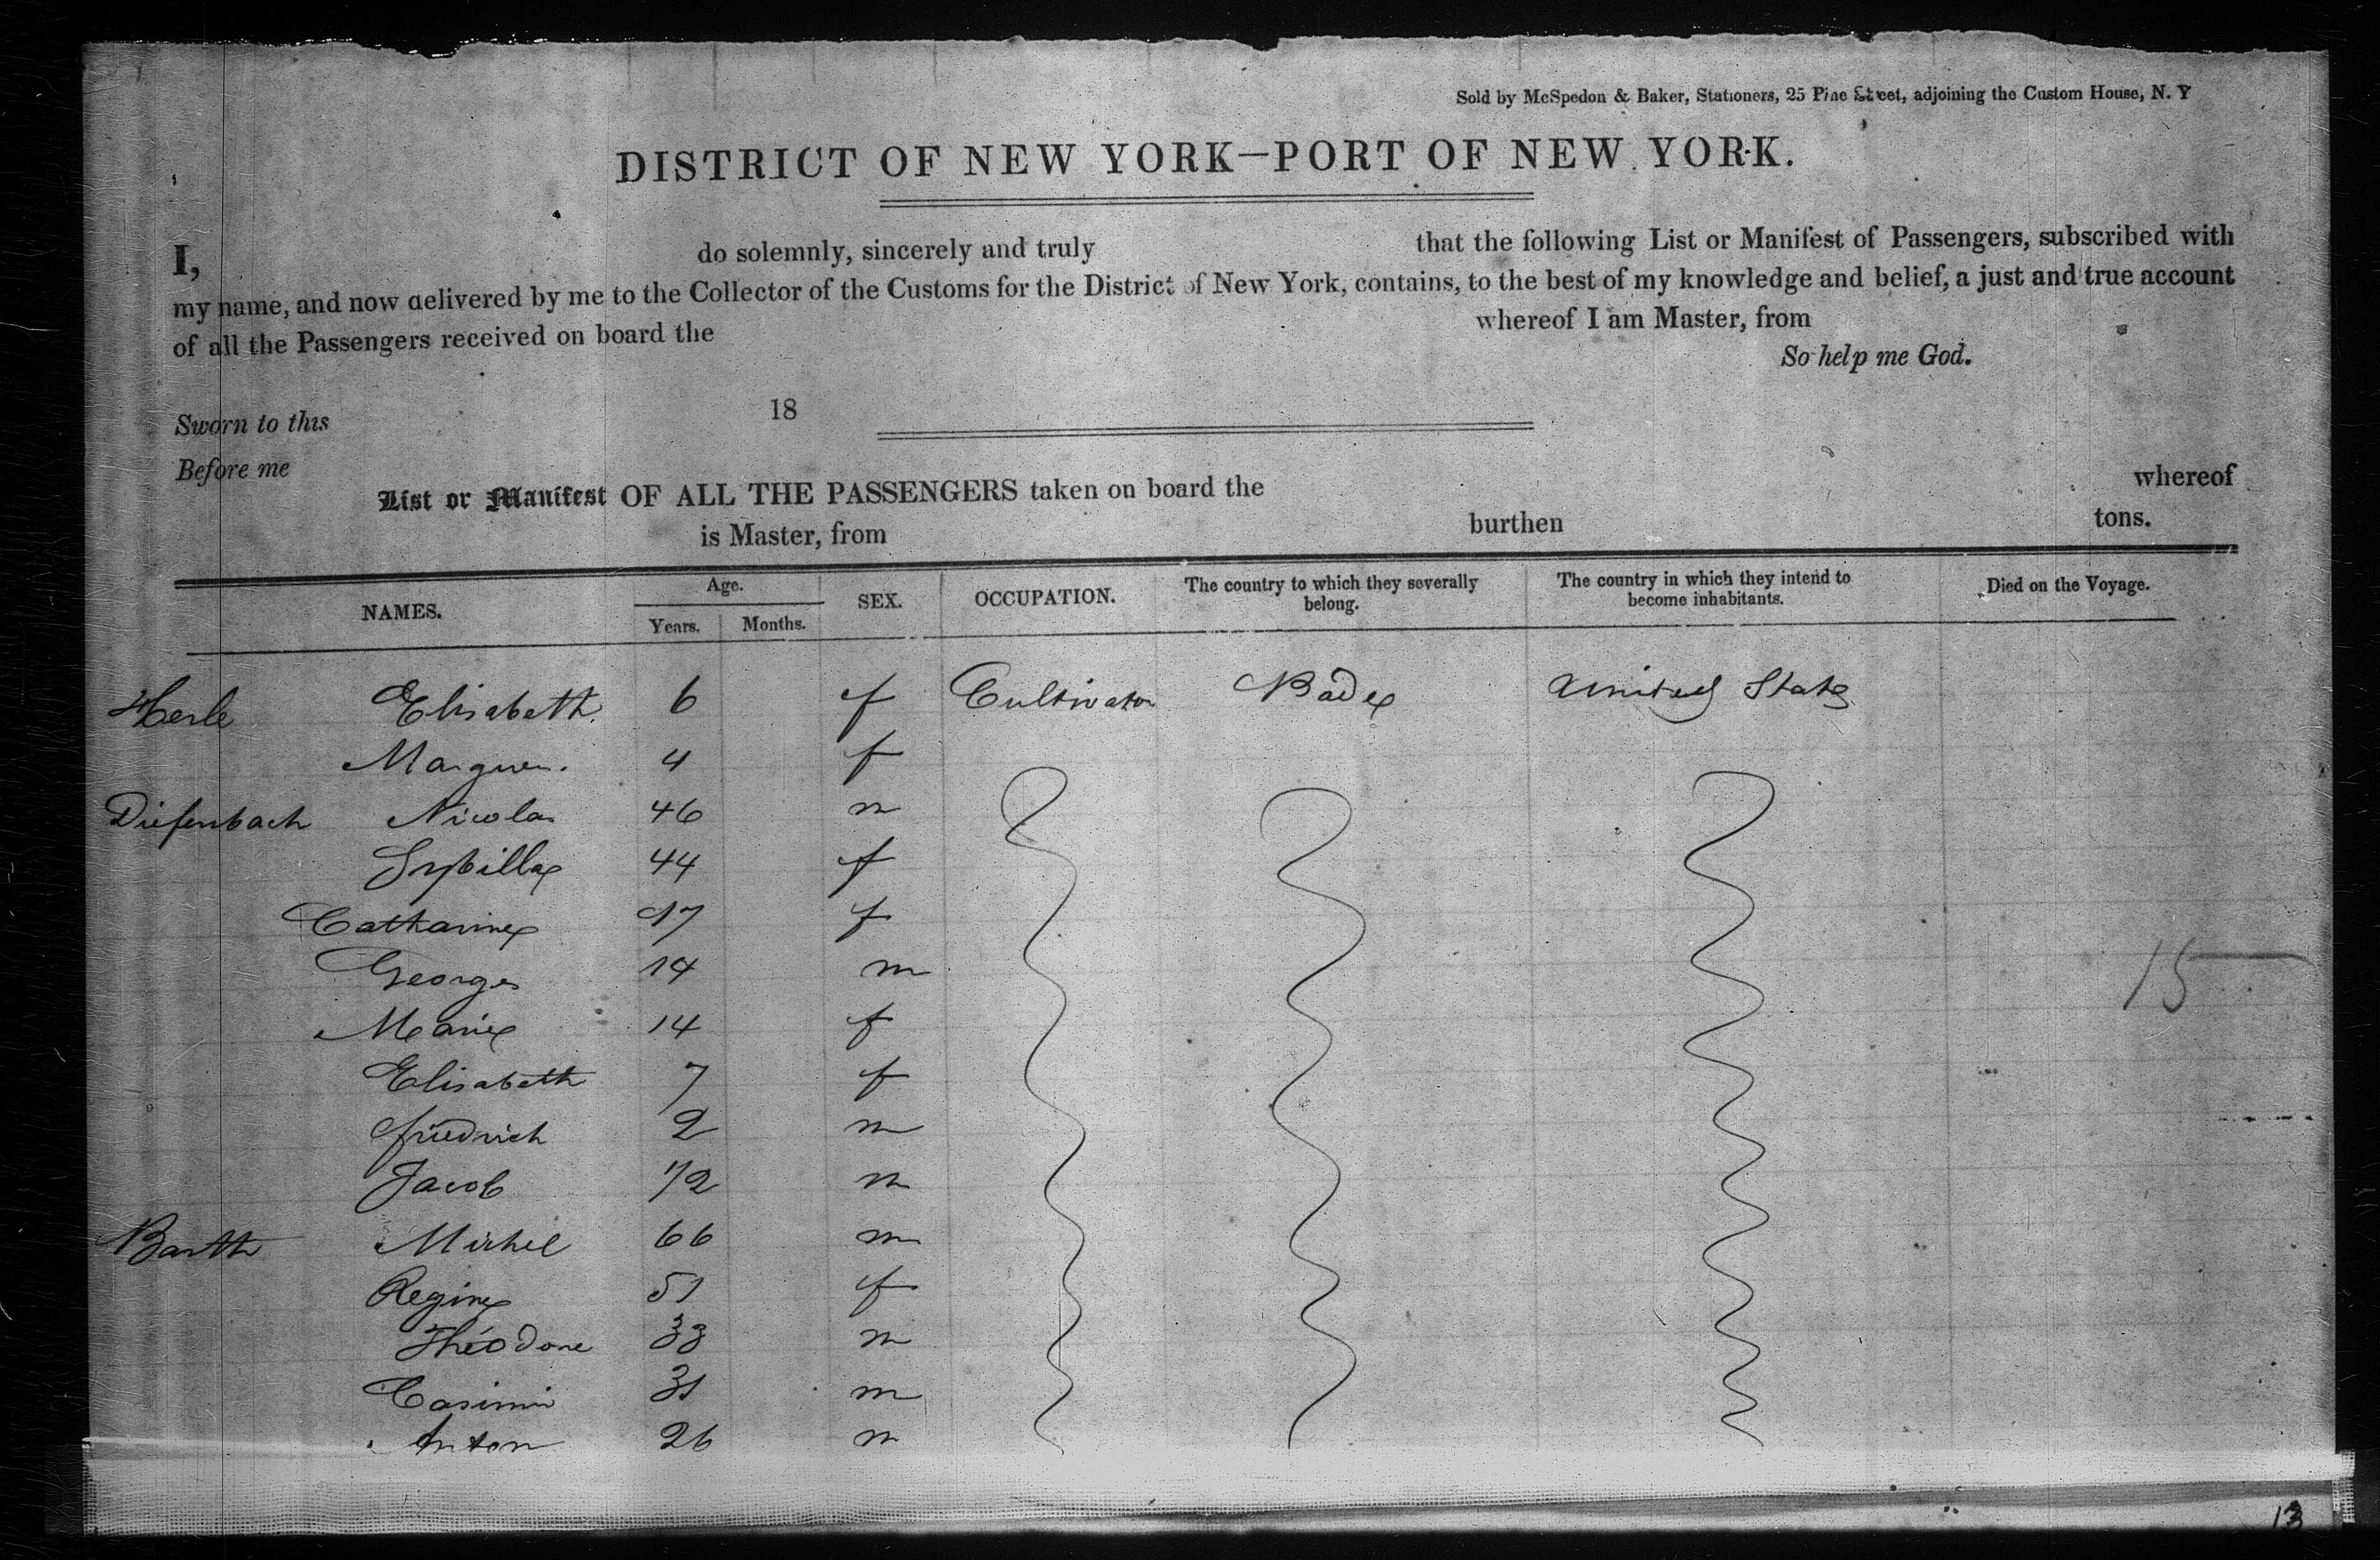 Sold by McSpedon & Baker, Stationers, 25 Pine Street, adjoining the Custom House, N. Y
DISTRICT OF NEW YORK—PORT OF NEW YORK.
I, do solemnly, sincerely and truly that the following List or Manifest of Passengers, subscribed with
my name, and now delivered by me to the Collector of the Customs for the District of New York, contains, to the best of my knowledge and belief, a just and true account
of all the Passengers received on board the whereof I am Master, from
So help me God.
Sworn to this 18
Before me
List or Manifest OF ALL THE PASSENGERS taken on board the whereof
is Master, from burthen tons.
NAMES. Age. Years. Months. SEX. OCCUPATION. The country to which they severally belong. The country in which they intend to become inhabitants. Died on the Voyage.
Herle Elisabeth 6 f Cultivator Bade United State
Marguer. 4 f
Diefenbach Nicolas 46 m
Sybilla 44 f
Catharine 17 f
Georges 14 m
Marie 14 f
Elisabeth 7 f
friedrich 2 m
Jacob 72 m
15
Barth Michel 66 m
Regine 51 f
Théodore 33 m
Casimir 31 m
Anton 26 m
13